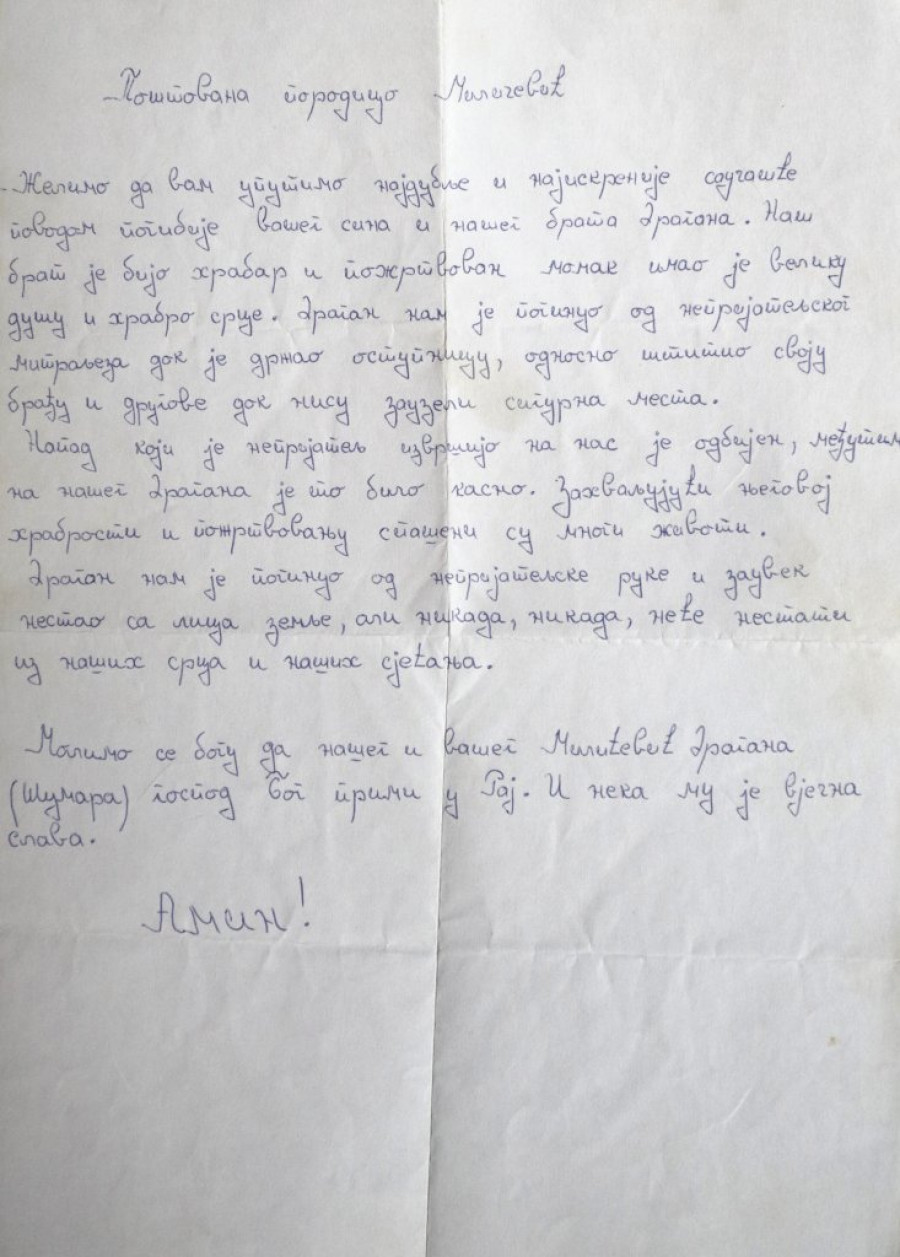 - Поштована породицо Миличевић
- Желимо да вам упутимо најдубље и најискреније саучашће
поводом погибије вашег сина и нашег брата Драгана. Наш
брат је бијо храбар и пожртвован момак имао је велику
душу и храбро срце. Драган нам је погинуо од непријатељског
митраљеза док је држао оступницу, односно штитио своју
браћу и другове док нису заузели сигурна места.
Напад који је непријатељ извршијо на нас је одбијен, међутим
на нашег Драгана је то било касно. Захваљујући његовој
храбрости и пожртвовању спашени су многи животи.
Драган нам је погинуо од непријатељске руке и заувек
нестао са лица земље, али никада, никада, неће нестати
из наших срца и наших сјећања.
Молимо се богу да нашег и вашег Милићевић Драгана
(Шумара) господ Бог прими у Рај. И нека му је вјечна
слава.
Амин!